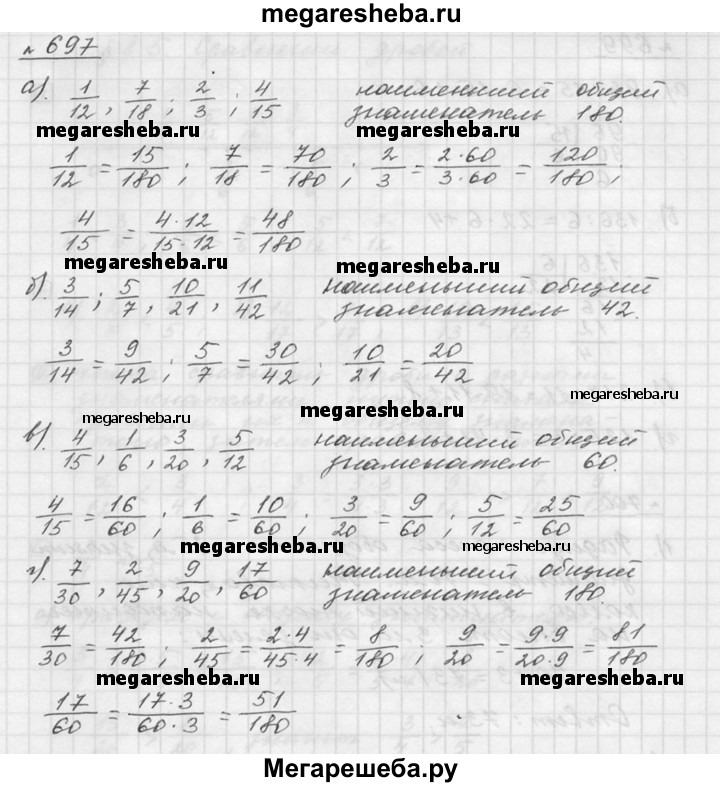 megaresheba.ru
№ 697
а). 1/12, 7/18; 2/3; 4/15 наименьший общий
знаменатель 180.
megaresheba.ru megaresheba.ru
1/12 = 15/180; 7/18 = 70/180; 2/3 = 2·60/3·60 = 120/180,
4/15 = 4·12/15·12 = 48/180
megaresheba.ru megaresheba.ru
б). 3/14; 5/7, 10/21, 11/42 наименьший общий
знаменатель 42.
3/14 = 9/42; 5/7 = 30/42; 10/21 = 20/42
megaresheba.ru megaresheba.ru megaresheba.ru
в). 4/15, 1/6, 3/20, 5/12 наименьший общий
знаменатель 60.
4/15 = 16/60; 1/6 = 10/60; 3/20 = 9/60; 5/12 = 25/60
megaresheba.ru megaresheba.ru
г). 7/30, 2/45, 9/20, 17/60 наименьший общий
знаменатель 180
7/30 = 42/180; 2/45 = 2·4/45·4 = 8/180; 9/20 = 9·9/20·9 = 81/180
megaresheba.ru megaresheba.ru
17/60 = 17·3/60·3 = 51/180
Мегарешеба.ру